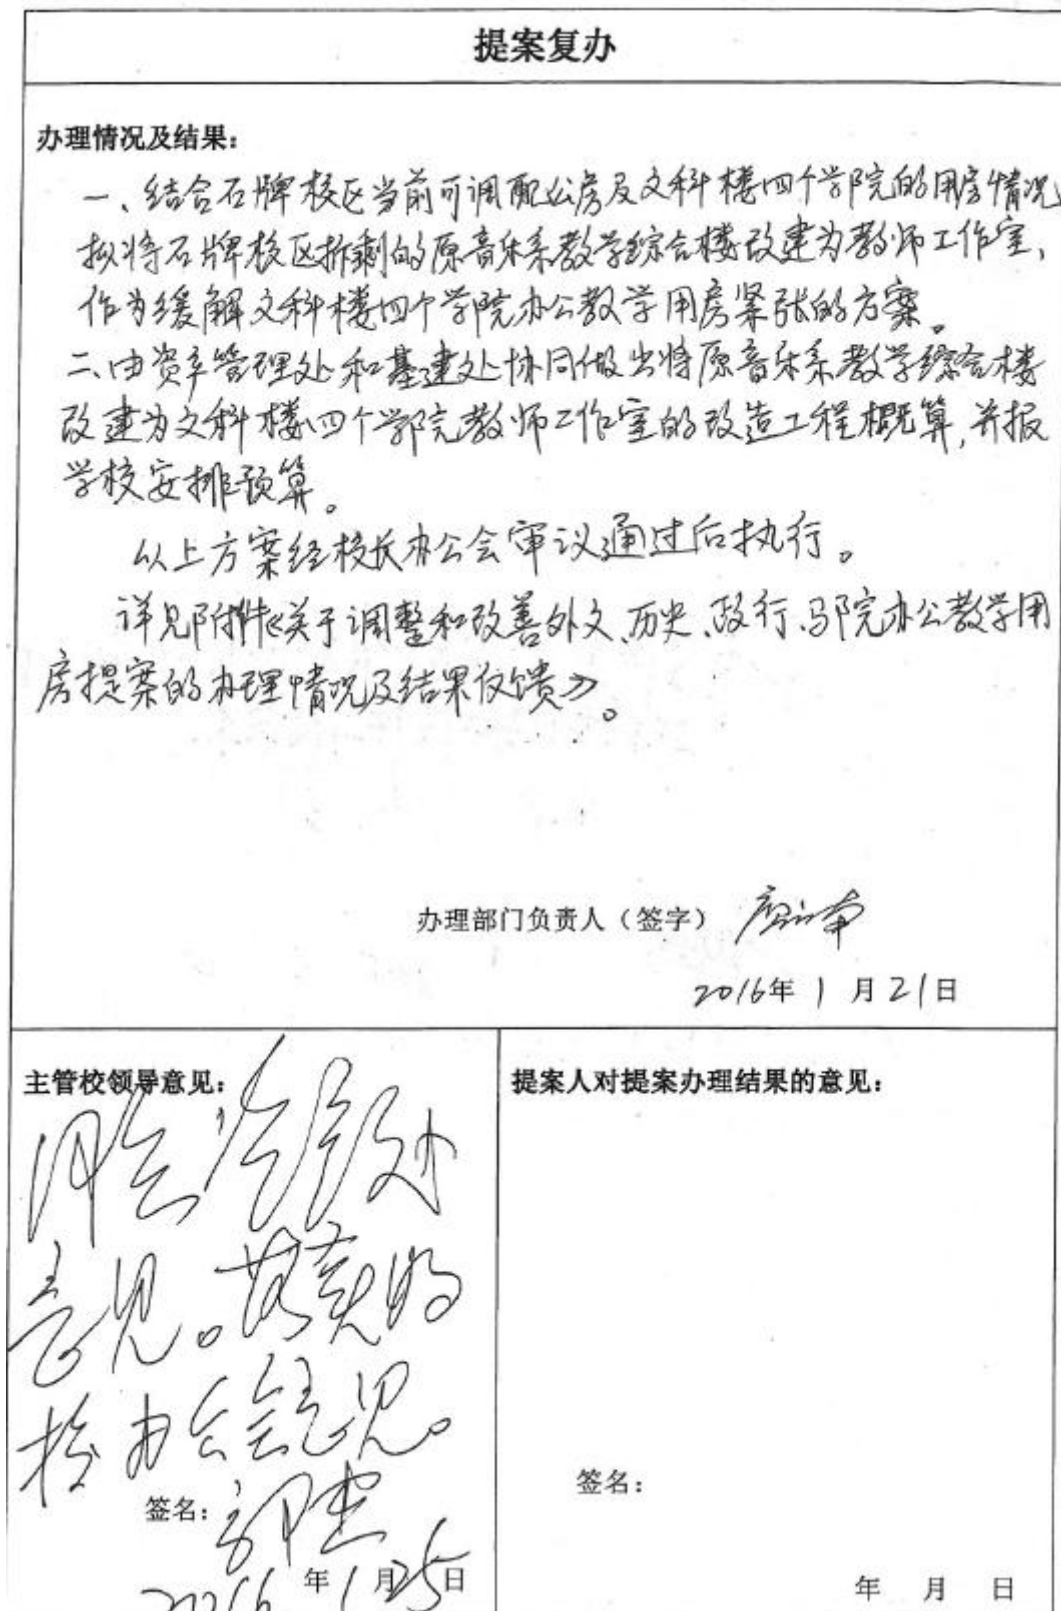 提案复办
办理情况及结果：
一、结合石牌校区当前可调配公房及文科楼四个学院的用房情况
拟将石牌校区拆剩的原音乐系教学综合楼改建为教师工作室，
作为缓解文科楼四个学院办公教学用房紧张的方案。
二、由资产管理处和基建处协同做出将原音乐系教学综合楼
改建为文科楼四个学院教师工作室的改造工程概算，并报
学校安排预算。
以上方案经校长办公会审议通过后执行。
详见附件《关于调整和改善外文、历史、政行、马院办公教学用
房提案的办理情况及结果反馈》。
办理部门负责人（签字）
2016年1月21日
主管校领导意见：
同意资管处
意见。落实好
校办公会意见。
签名：
2016年1月25日
提案人对提案办理结果的意见：
签名：
年 月 日